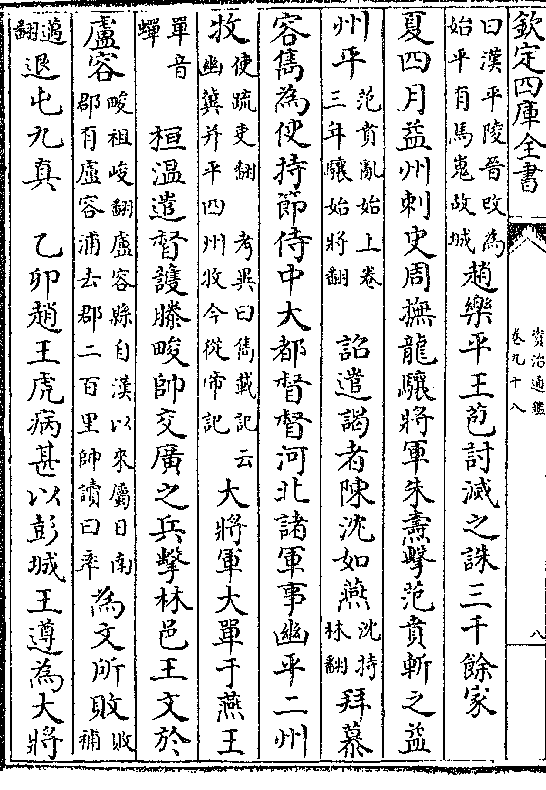 欽定四庫全書
資治通鑑
卷九十八
八
曰漢平陵晉改為
始平有馬嵬故城
趙樂平王苞討滅之誅三千餘家
夏四月益州刺史周撫龍驤將軍朱燾擊范賁斬之益
州平
范賁亂始上卷
三年驤始將翻
詔遣謁者陳沈如燕
沈持
林翻
拜慕
容儁為使持節侍中大都督督河北諸軍事幽平二州
牧
使疏吏翻 考異曰儁載記云
幽冀并平四州牧今從帝記
大將軍大單于燕王
單音
蟬
桓溫遣督護滕畯帥交廣之兵擊林邑王文於
盧容
畯祖峻翻盧容縣自漢以來屬日南
郡有盧容浦去郡二百里帥讀曰率
為文所敗
敗補
邁
翻
退屯九真 乙卯趙王虎病甚以彭城王遵為大將